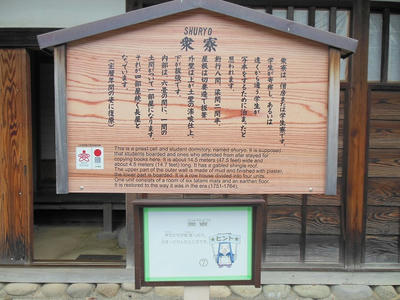 SHURYO
衆寮
衆寮は、僧房または学生寮です。
学生が寄宿し、あるいは
遠くから通う学生が
写本をするために泊まったと
思われます。
桁行八間、梁間二間半、
屋根は切妻造で板葺、
外壁は上が土壁の漆喰仕上、
下が板張りです。
内部は、六畳の間に、一間の
土間がついて一部屋になります。
それが四部屋続く長屋と
なっています。
(宝暦年間の姿に復原)
This is a priest cell and student dormitory, named shuryo. It is supposed
that students boarded and ones who attended from afar stayed for
copying books here. It is about 14.5 meters (47.5 feet) wide and
about 4.5 meters (14.7 feet) long. It has a gabled shingle roof.
The upper part of the outer wall is made of mud and finished with plaster,
the lower part is boarded. It is a row house divided into four units.
One unit consists of a room of six tatami mats and an earthen floor.
It is restored to the way it was in the era (1751-1764).
ヒント
7